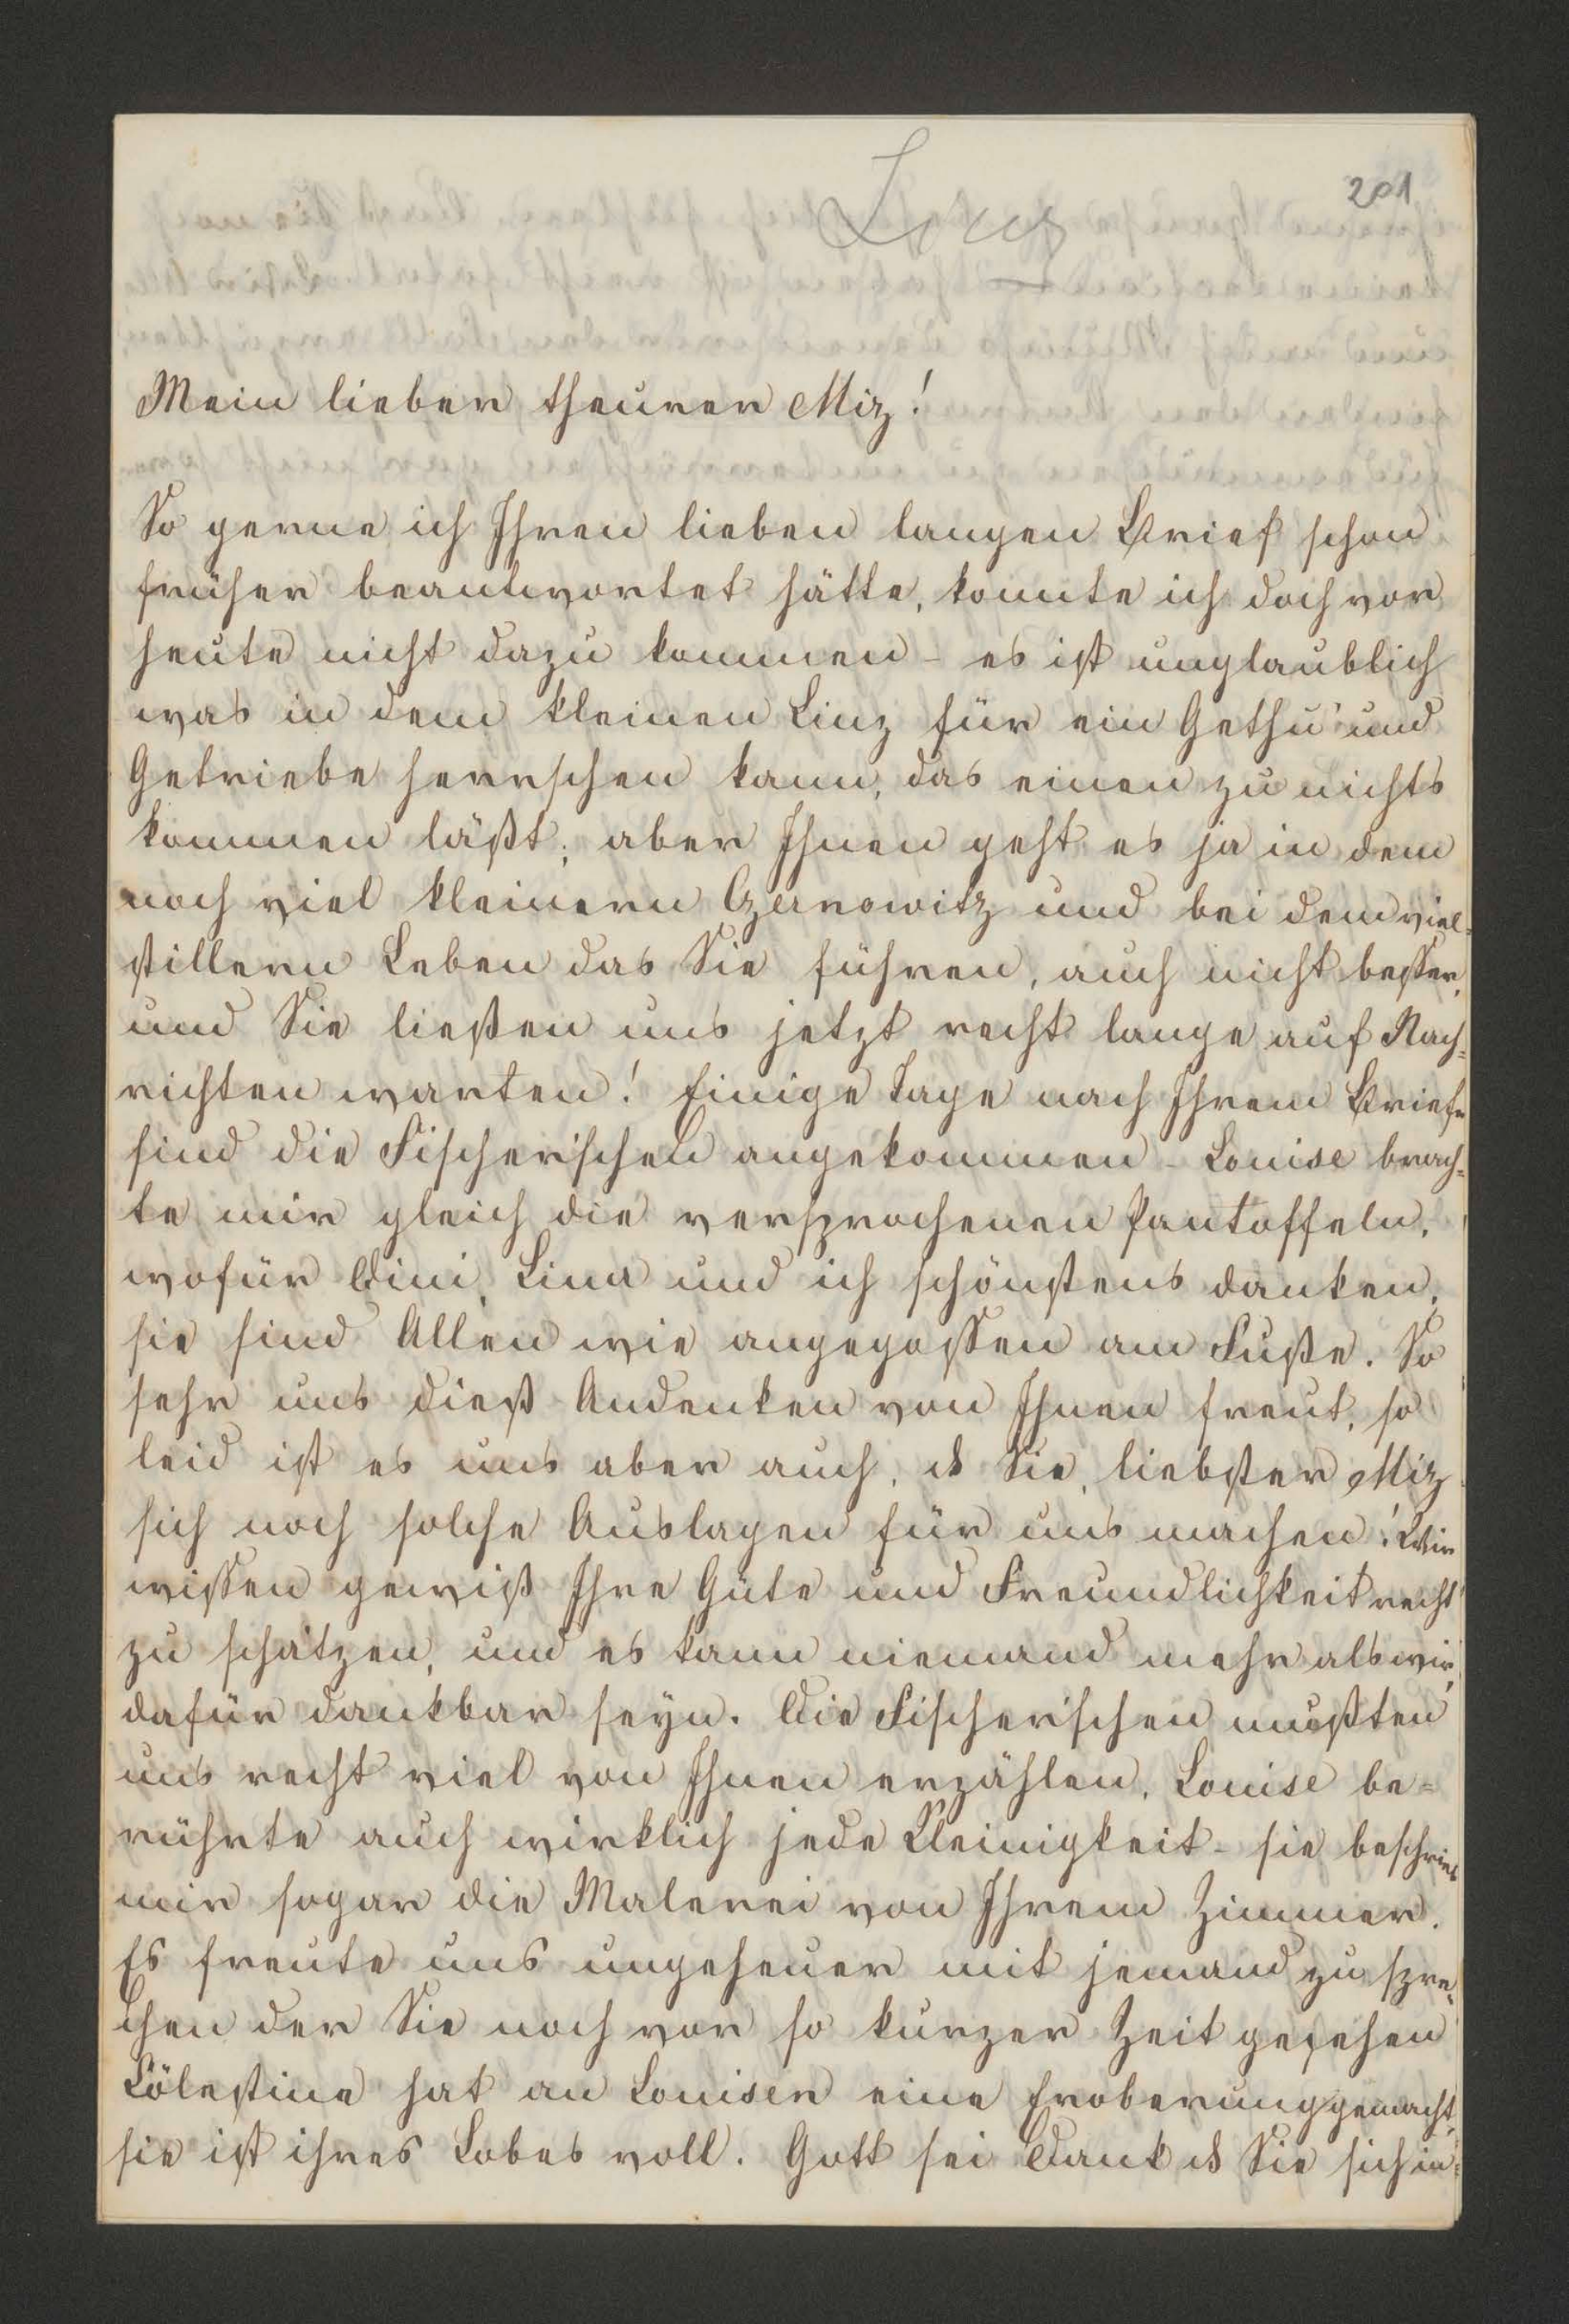 201
Mein lieber theurer Miz!
So gerne ich Ihren lieben langen Brief schon
früher beantwortet hätte, konnte ich doch vor
heute nicht dazu kommen - es ist unglaublich
was in dem kleinen Linz für ein Gethu' und
Getriebe herrschen kann, das einen zu nichts
kommen läßt; aber Ihnen geht es ja in dem
noch viel kleinern Czernowitz und bei dem viel-
stillern Leben das Sie führen, auch nicht besser,
und Sie ließen uns jetzt recht lange auf Nach-
richten warten! Einige Tage nach Ihrem Briefe
sind die Fischerischen angekommen - Louise brach-
te mir gleich die versprochenen Pantoffeln,
wofür Dini, Lina und ich schönstens danken,
sie sind Allen wie angegossen am Fuße. So
sehr uns dieß Andenken von Ihnen freut, so
leid ist es uns aber auch, ds Sie, liebster Miz
sich noch solche Auslagen für uns machen! Wir
wissen gewiß Ihre Güte und Freundlichkeit recht
zu schätzen, und es kann niemand mehr als wir,
dafür dankbar seyn. Die Fischerischen mußten
uns recht viel von Ihnen erzählen, Louise be-
rührte auch wirklich jede Kleinigkeit - sie beschrieb
mir sogar die Malerei von Ihrem Zimmer.
Es freute uns ungeheuer mit jemand zu spre-
chen der Sie noch vor so kurzer Zeit gesehen
Cölestine hat an Louisen eine Eroberung gemacht,
sie ist ihres Lobes voll. Gott sei Dank ds Sie sich in-